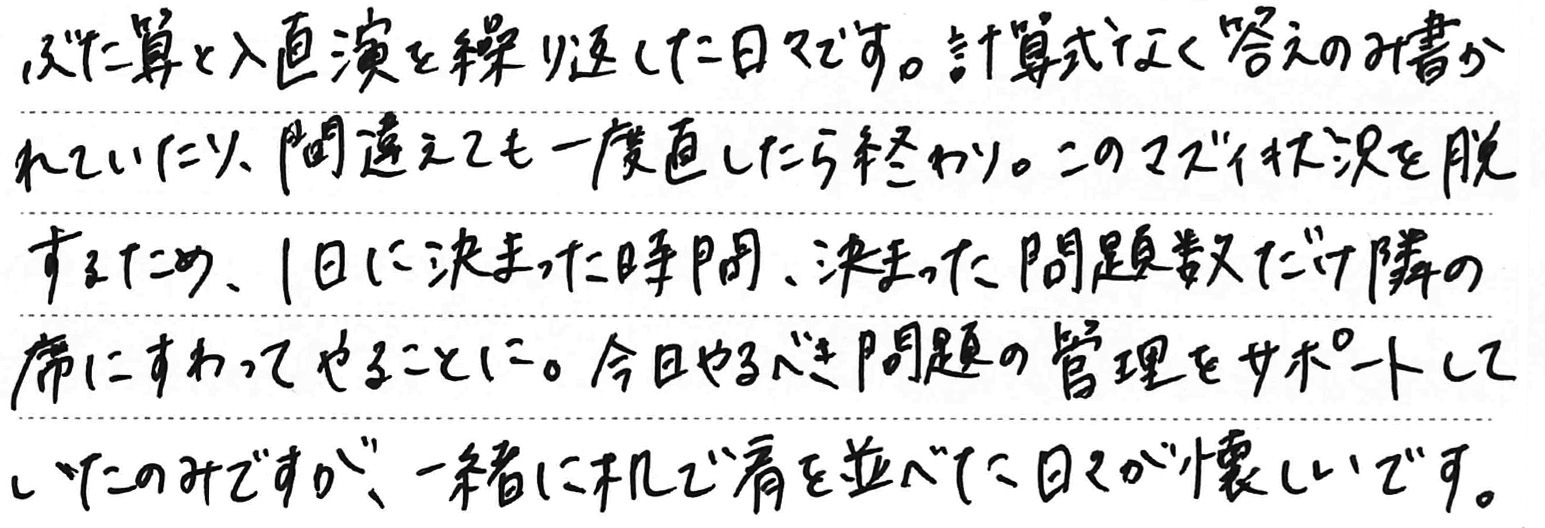 ぶた算と入直演を繰り返した日々です。計算式なく答えのみ書か
れていたり、間違えても一度直したら終わり。このマズイ状況を脱
するため、1日に決まった時間、決まった問題数だけ隣の
席にすわってやることに。今日やるべき問題の管理をサポートして
いたのみですが、一緒に机で肩を並べた日々が懐しいです。